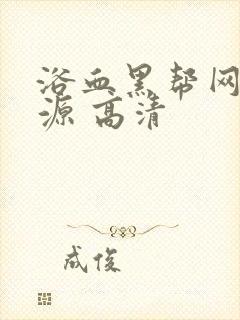 浴血黑帮网
源 高清
成俊